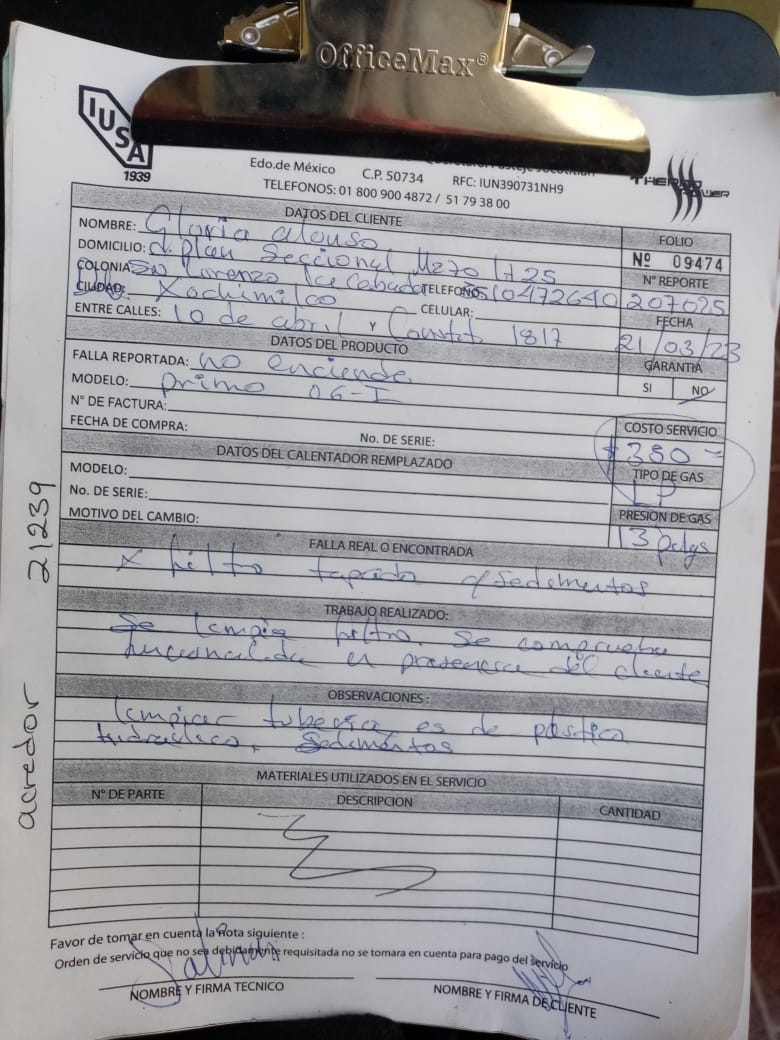 OfficeMax®
IUSA
1939
Edo.de México C.P. 50734 RFC: IUN390731NH9
TELEFONOS: 01 800 900 4872 / 51 79 38 00
THERMO POWER
DATOS DEL CLIENTE
NOMBRE: Gloria alonso
DOMICILIO: d. plan Seccional Mz70 lt 25
COLONIA: Sn Lorenzo TELEFONO:
CIUDAD: Xochimilco CELULAR:
ENTRE CALLES: 10 de abril Y Constit 1817
FOLIO
Nº 09474
N° REPORTE
207025
FECHA
21/03/23
GARANTIA
SI NO
DATOS DEL PRODUCTO
FALLA REPORTADA: no enciende
MODELO: primo 06-I
N° DE FACTURA:
FECHA DE COMPRA: No. DE SERIE:
COSTO SERVICIO
$380=
TIPO DE GAS
LP
PRESION DE GAS
13 pclgs
DATOS DEL CALENTADOR REMPLAZADO
MODELO:
No. DE SERIE:
MOTIVO DEL CAMBIO:
FALLA REAL O ENCONTRADA
x filtro tapado c/sedimentos
TRABAJO REALIZADO:
Se limpia filtro. Se comprueba
funcionalidad en presencia del cliente
OBSERVACIONES :
limpiar tuberia, es de plastico
hidraulico. Sedimentos
MATERIALES UTILIZADOS EN EL SERVICIO
N° DE PARTE DESCRIPCION CANTIDAD
Favor de tomar en cuenta la nota siguiente :
Orden de servicio que no sea debidamente requisitada no se tomara en cuenta para pago del servicio
Salinas
NOMBRE Y FIRMA TECNICO NOMBRE Y FIRMA DE CLIENTE
acredor 21239